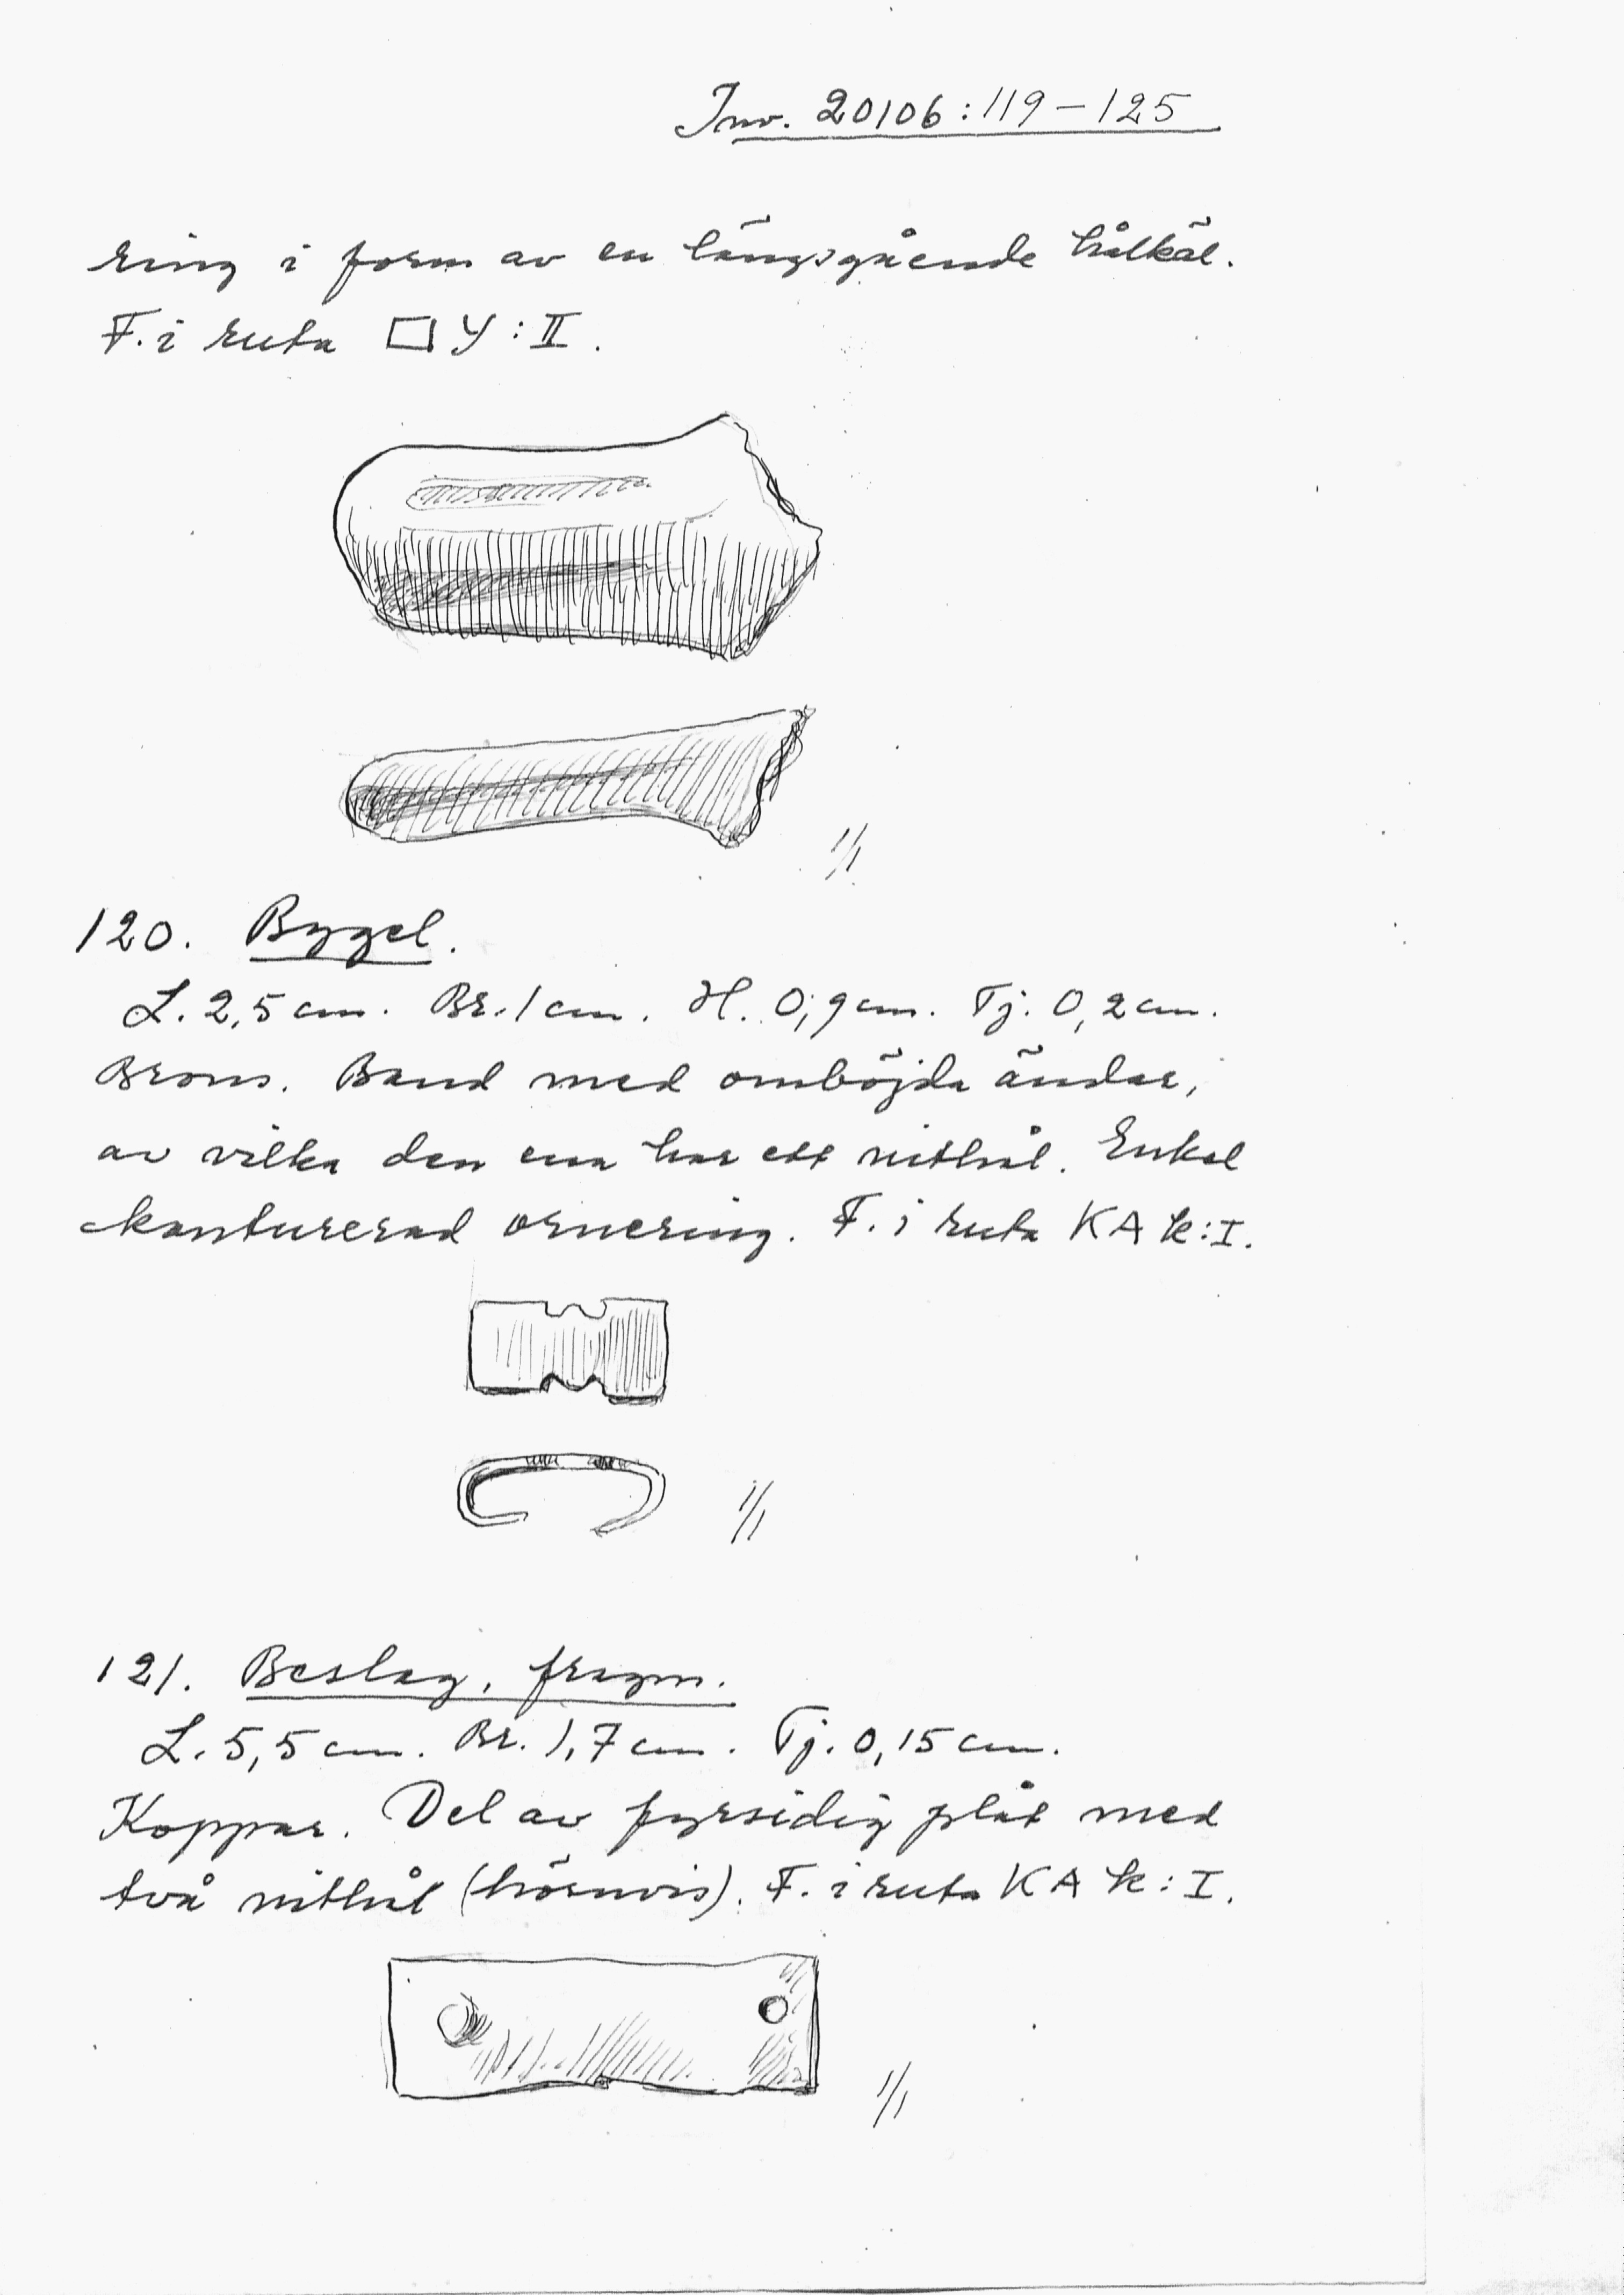 Inv. 20106:119–125
ring i form av en längsgående hålkäl.
F. i ruta □ Y:II.
1/1
120. Bygel.
L. 2,5 cm. Br. 1 cm. H. 0,9 cm. Tj. 0,2 cm.
Brons. Band med omböjda ändar,
av vilka den ena har ett nithål. Enkel
konturerad ornering. F. i ruta KA k:I.
1/1
121. Beslag, fragm.
L. 5,5 cm. Br. 1,7 cm. Tj. 0,15 cm.
Koppar. Del av fyrsidig plåt med
två nithål (hörnvis). F. i ruta KA k:I.
1/1